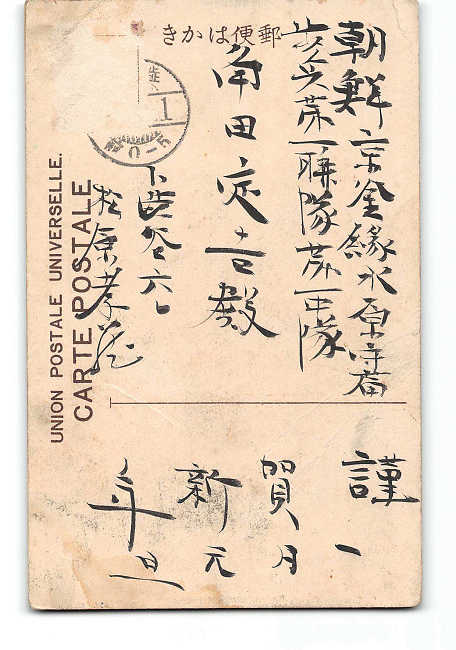 郵便はかき
朝鮮京釜線水原守備
歩兵第一聯隊第一中隊
角田定吉殿
下渋谷六
松原孝
UNION POSTALE UNIVERSELLE.
CARTE POSTALE
謹賀新年
一月元旦